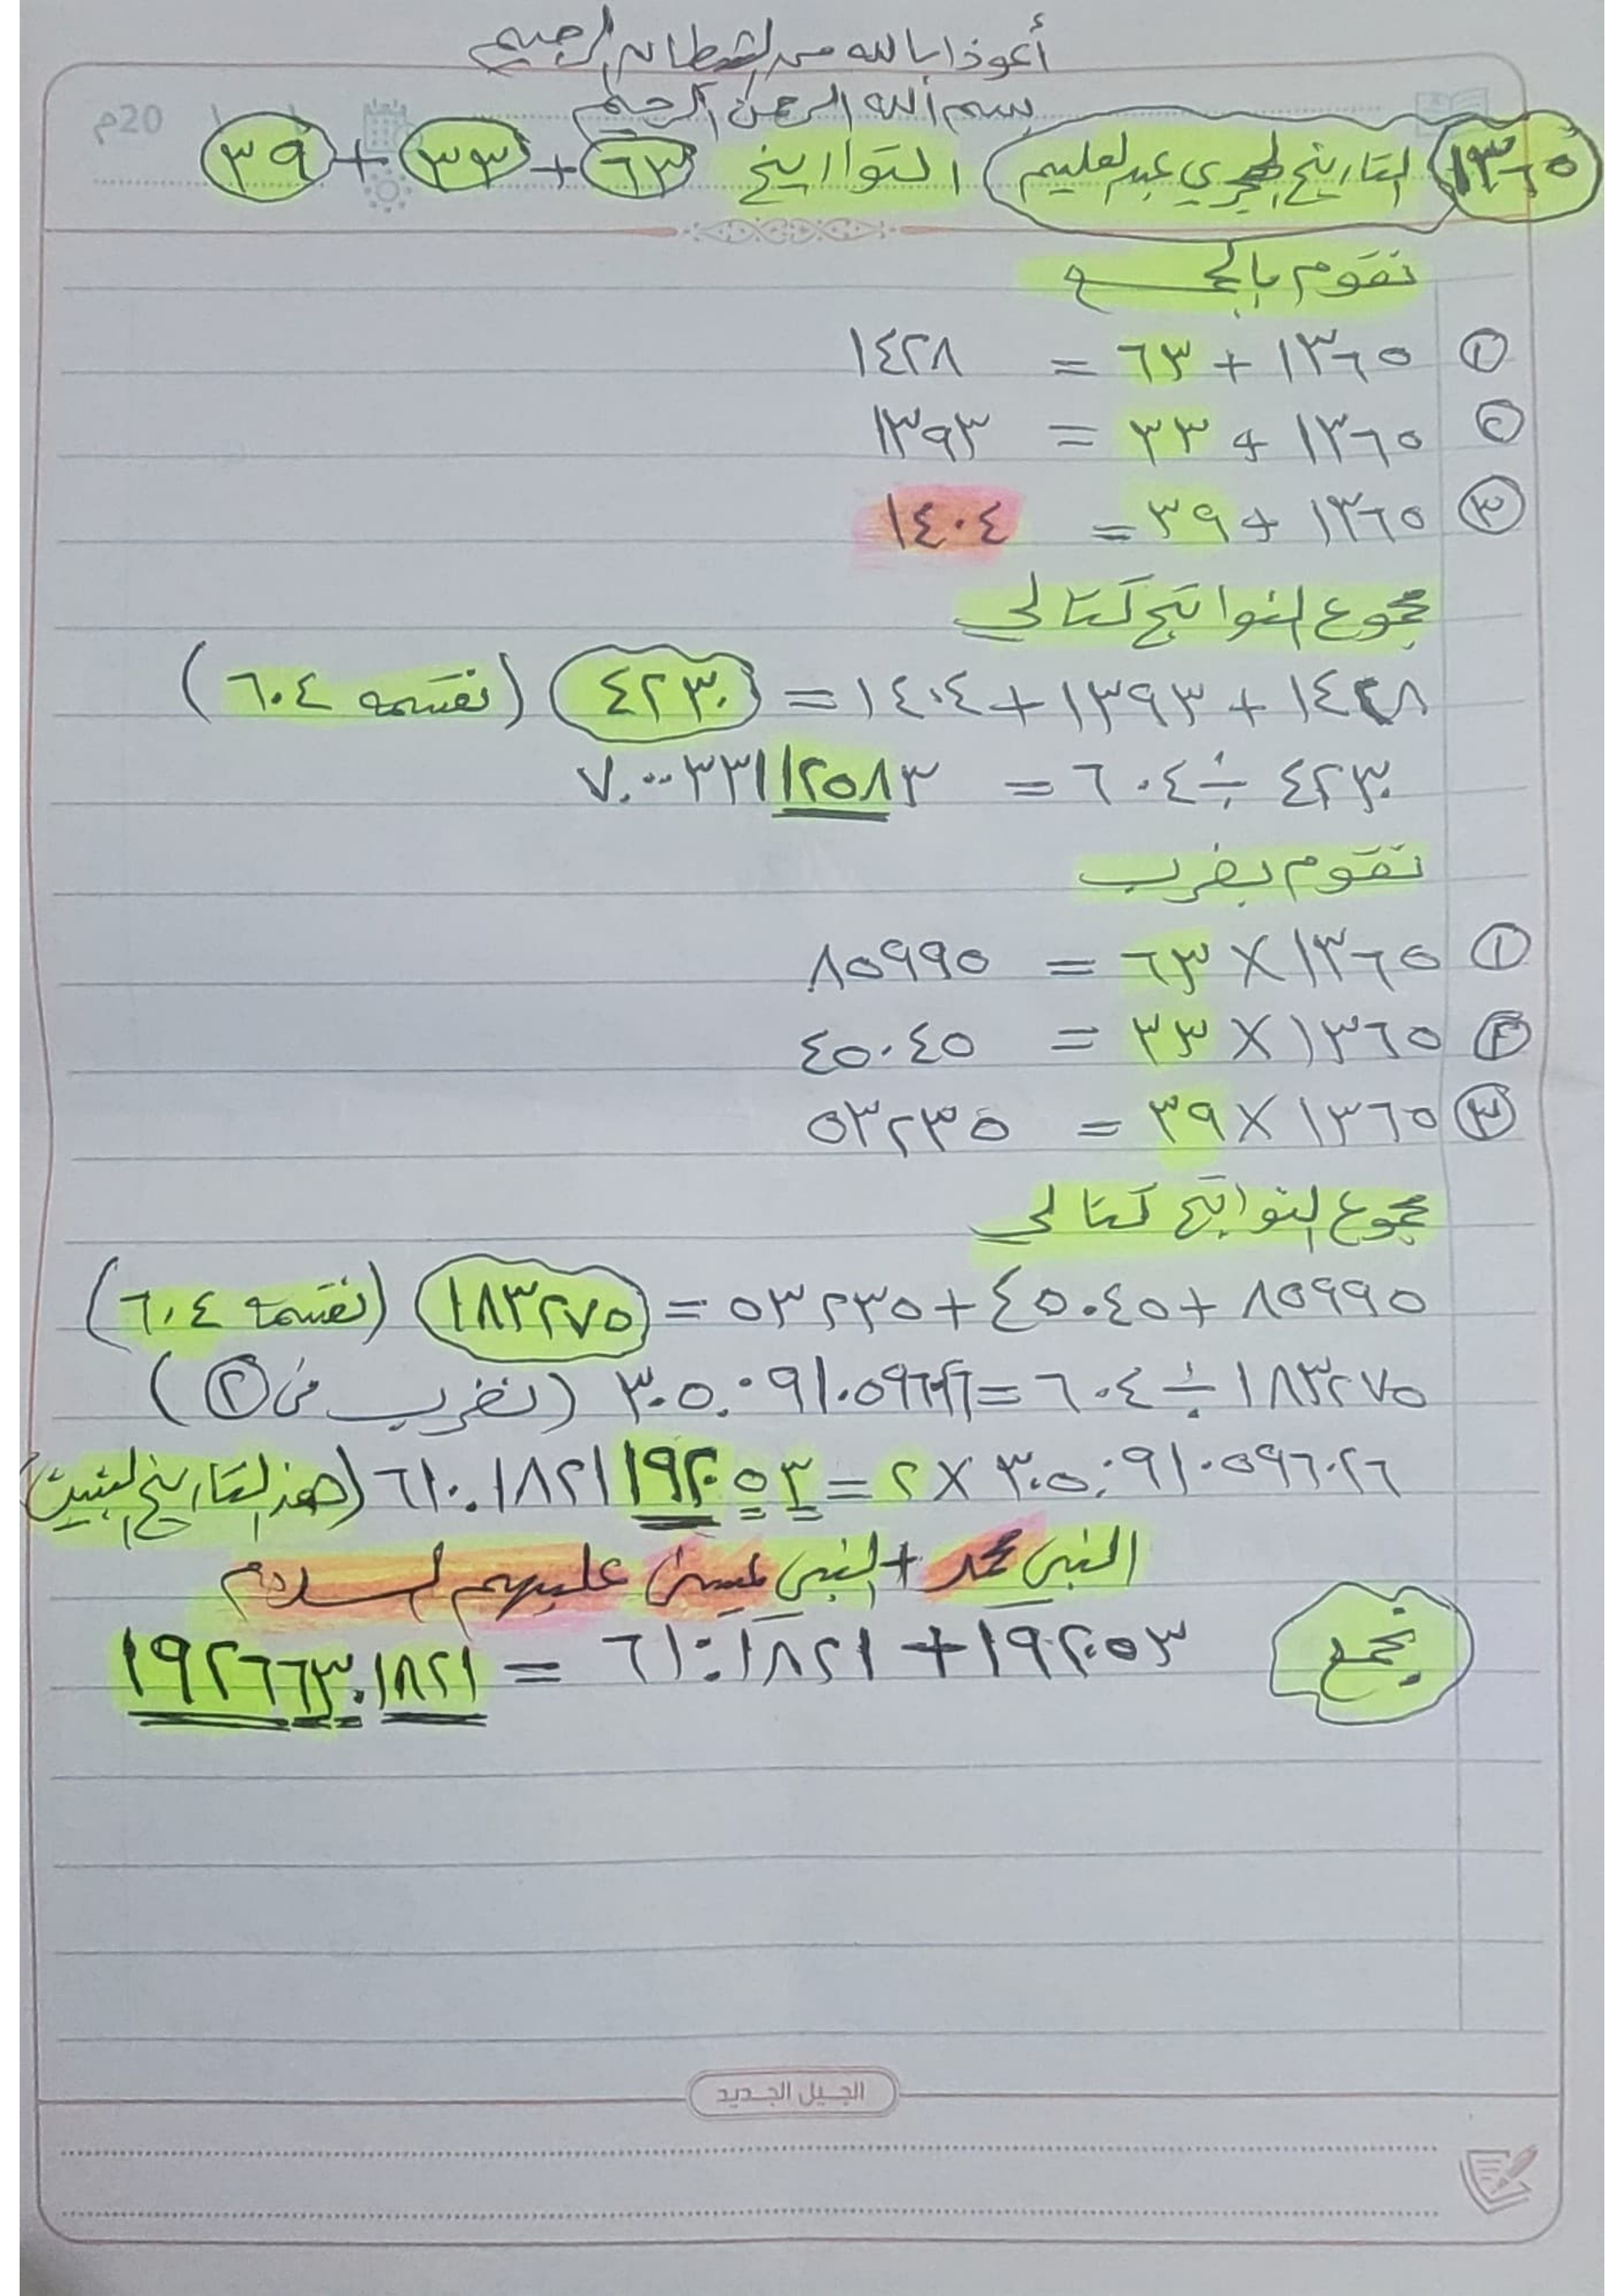 أعوذ بالله من الشيطان الرجيم
بسم الله الرحمن الرحيم
20م
١٣٦٥ التاريخ الهجري عبد العليم / التواريخ ٦٣ + ٣٣ + ٣٩
نقوم بالجمع
١ ١٣٦٥ + ٦٣ = ١٤٢٨
٢ ١٣٦٥ + ٣٣ = ١٣٩٣
٣ ١٣٦٥ + ٣٩ = ١٤٠٤
مجموع النواتج كتالي
١٤٢٨ + ١٣٩٣ + ١٤٠٤ = ٤٢٣٠ (نقسمه ٦٠٤)
٤٢٣٠ ÷ ٦٠٤ = ٧.٠٠٣٣١١٢٥٨٣
نقوم بضرب
١ ١٣٦٥ × ٦٣ = ٨٥٩٩٥
٢ ١٣٦٥ × ٣٣ = ٤٥٠٤٥
٣ ١٣٦٥ × ٣٩ = ٥٣٢٣٥
مجموع النواتج كتالي
٨٥٩٩٥ + ٤٥٠٤٥ + ٥٣٢٣٥ = ١٨٣٢٧٥ (نقسمه ٦٠٤)
١٨٣٢٧٥ ÷ ٦٠٤ = (نضرب في ٢)
٣٠٥.٠٩١٠٥٩٦٠٢٦ × ٢ = ٦١٠.١٨٢١١٩٢٠٥٣ (هذ التاريخ
النبي محمد + النبي عليهم السلام
نجمع ١٩٢٠٥٣ + ٦١٠.١٨٢١ = ١٩٢٦٦٣.١٨٢١
الجيل الجديد